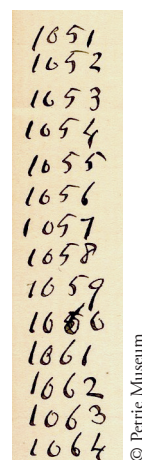 1651
1652
1653
1654
1655
1656
1657
1658
1659
1660
1661
1662
1663
1664
© Petrie Museum